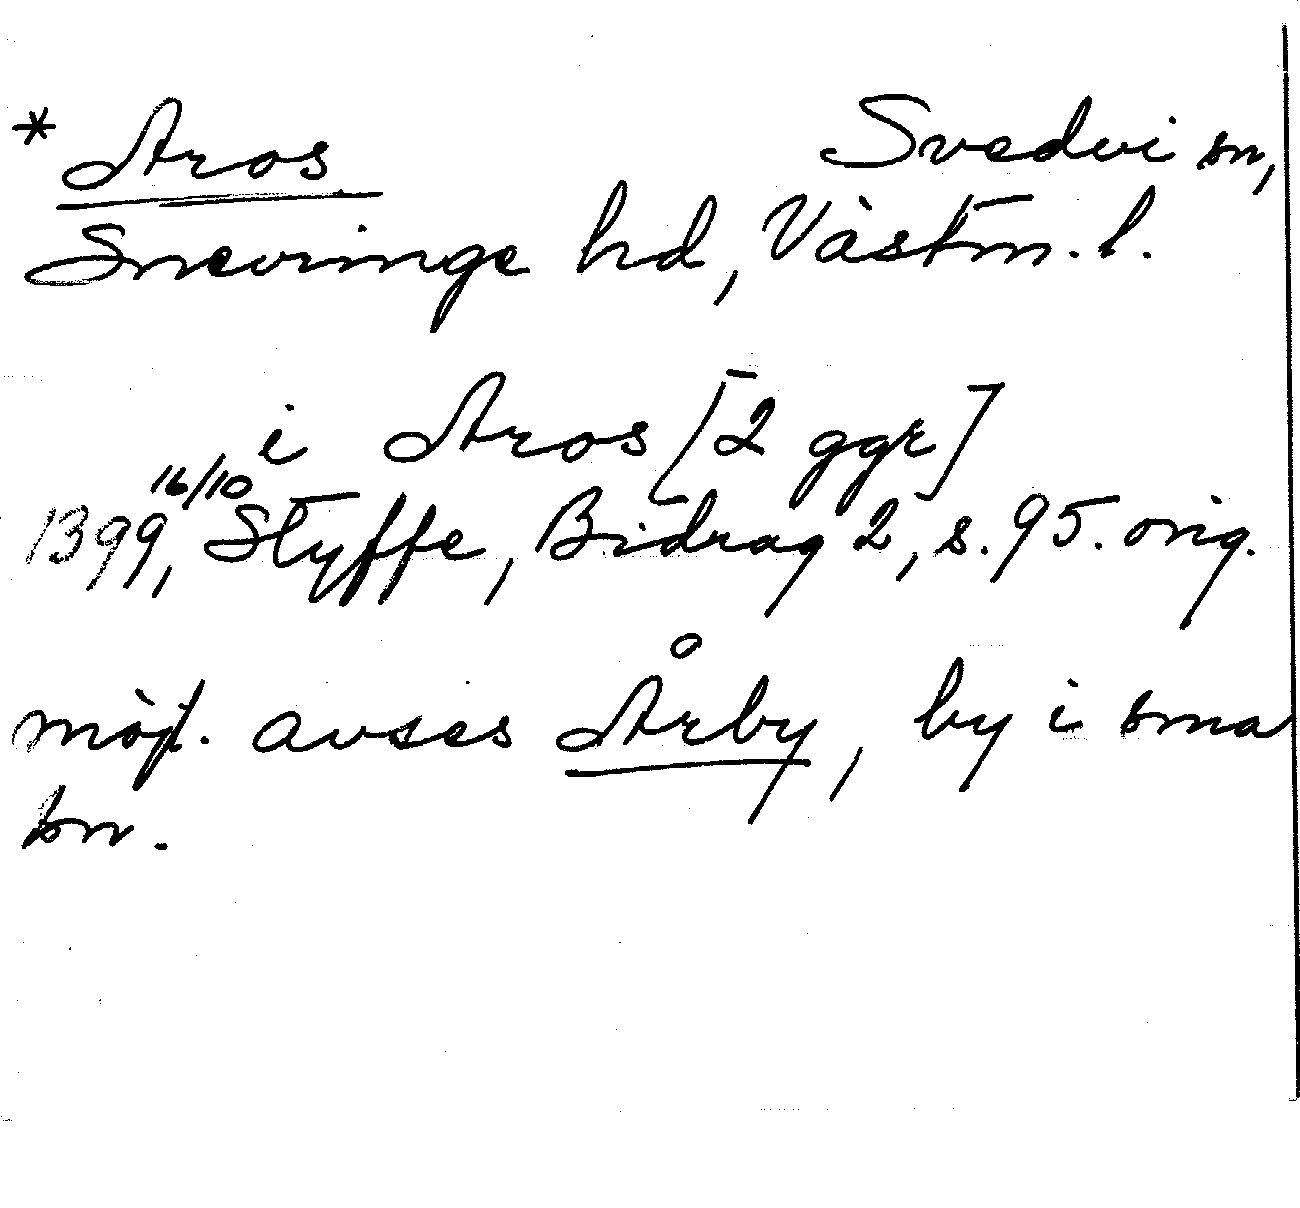 * Aros Svedvi sn,
Snevringe hd, Västm. l.
i Aros [2 ggr]
1399 16/10, Styffe, Bidrag 2, s. 95. orig.
möjl. avses Årby, by i sma
sn.